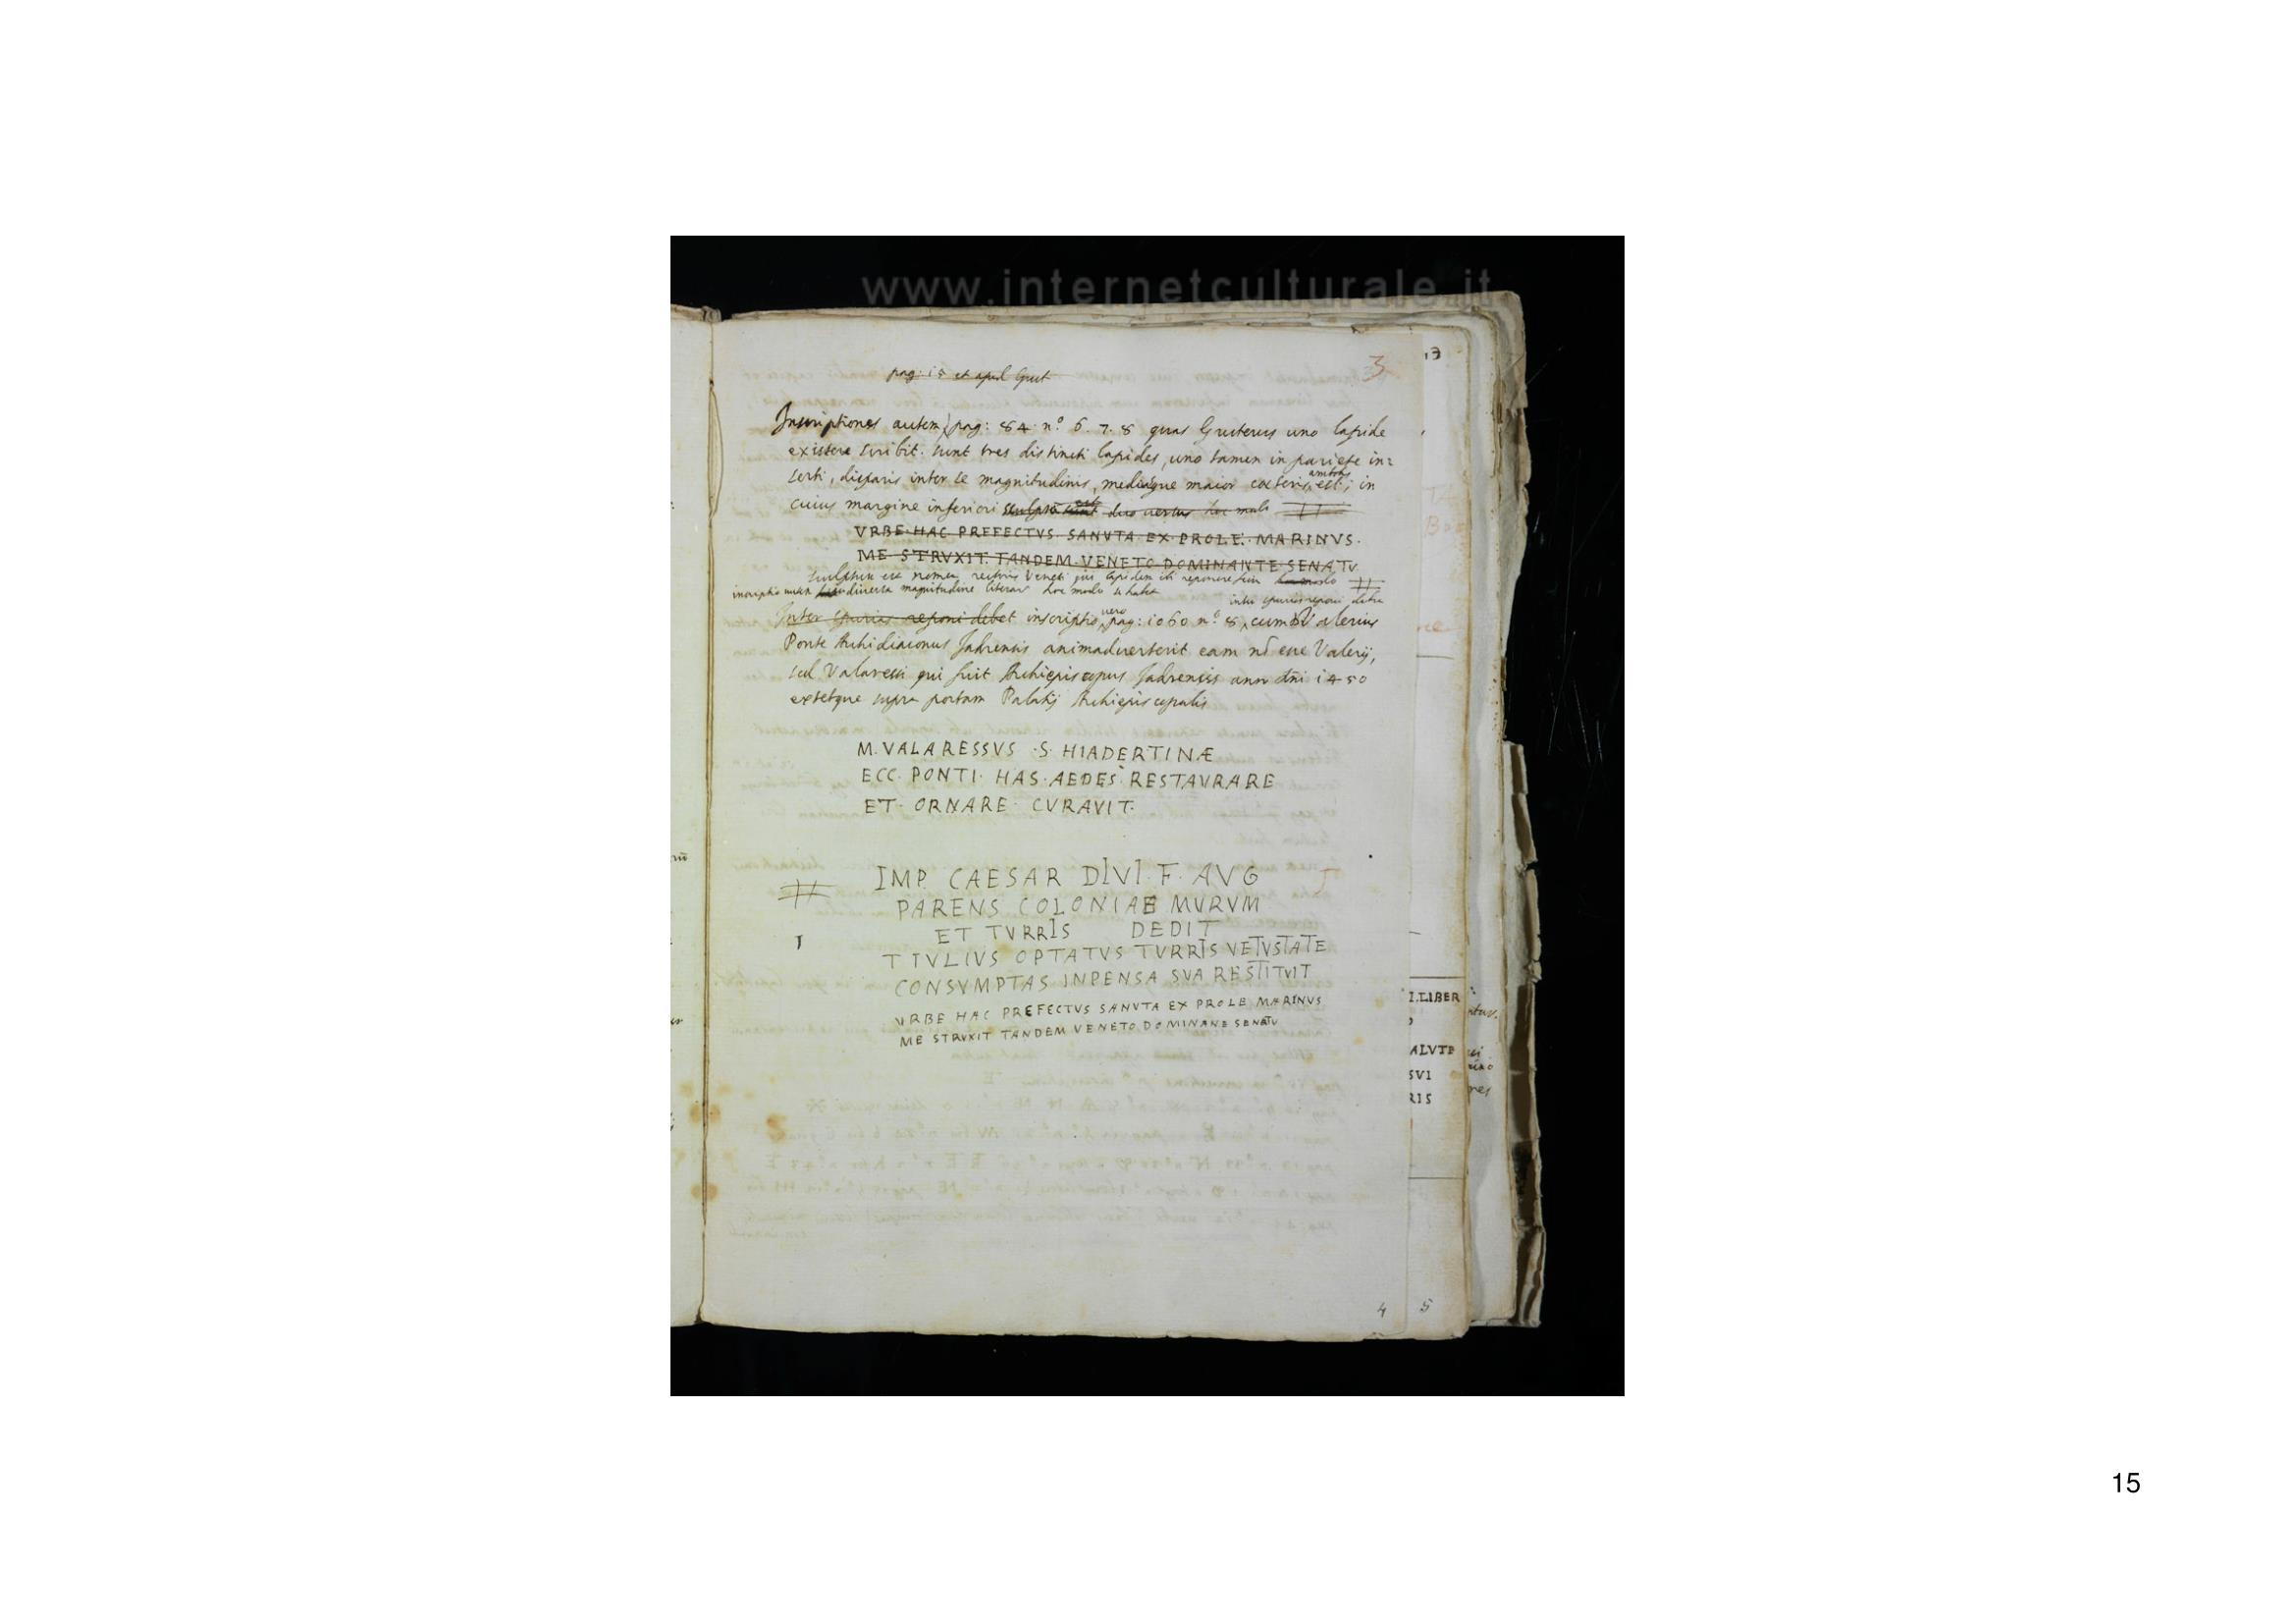 www.internetculturale.it
3
13
pag: 15 et apud Grut
Inscriptiones autem pag: 84 nº 6. 7. 8 quas Gruterus uno lapide
existere scribit. sunt tres distincti lapides, uno tamen in pariete in=
serti, disparis inter se magnitudinis, mediaque maior caeteris ambobus est; in
cuius margine inferiori sculpti duo versus hoc modo
VRBE·HAC PREFECTVS·SANVTA·EX·PROLE·MARINVS·
ME·STRVXIT·TANDEM·VENETO DOMINANTE SENATV
sculptum est nomen rectoris Veneti qui lapidem ibi reponere fecit hoc modo
inscriptio autem diversa magnitudine literarum hoc modo se habet
inter spurias reponi debet
Inter spurias reponi debet inscriptio vero pag: 1060 nº 8, cum Valerius
Ponte Archidiaconus Jadrensis animadverterit eam nõ esse Valerij,
sed Valaressi qui fuit Archiepiscopus Jadrensis anno dñi 1450
extetque supra portam Palatij Archiepiscopalis
M. VALARESSVS ·S· HIADERTINÆ
ECC· PONTI· HAS·AEDES·RESTAVRARE
ET· ORNARE· CVRAVIT·
IMP. CAESAR DIVI·F·AVG
PARENS COLONIAE MVRVM
ET TVRRIS DEDIT
T IVLIVS OPTATVS TVRRIS VETVSTATE
CONSVMPTAS INPENSA SVA RESTITVIT
VRBE HAC PREFECTVS SANVTA EX PROLE MARINVS
ME STRVXIT TANDEM VENETO DOMINANE SENATV
I.LIBER
ALVTE
SVI
RIS
4
5
15